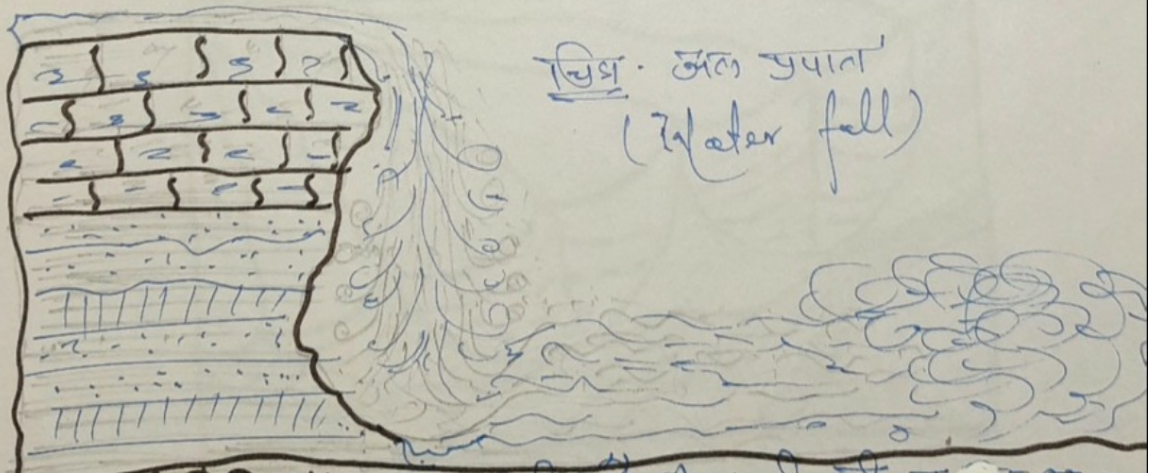 चित्र. जल प्रपात
(Water fall)